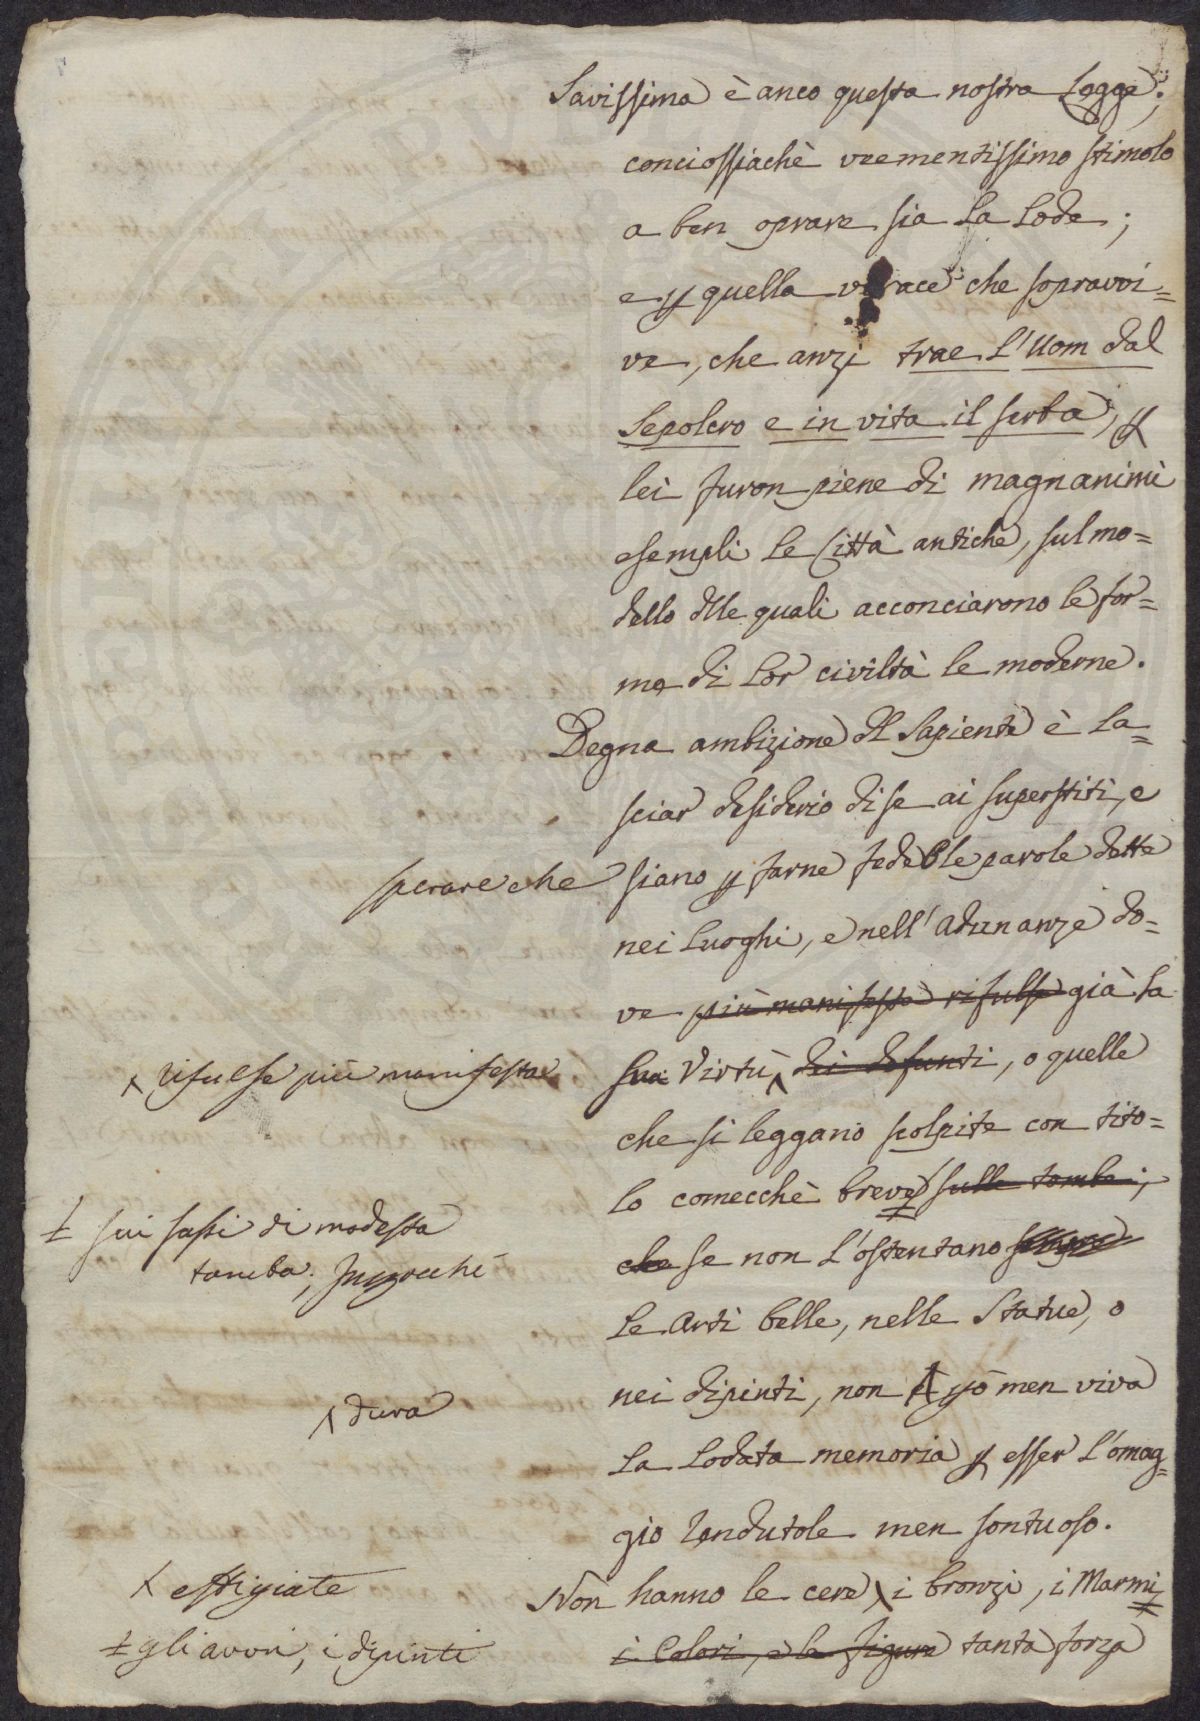 Savissima è anco questa nostra Legge;
conciossiachè veementissimo stimolo
a ben oprare sia la Lode;
e p quella verace che sopravvi=
ve, che anzi trae l'Uom dal
Sepolcro e in vita il serba, p
lei furon piene di magnanimi
esempli le Città antiche, sul mo=
dello dlle quali acconciarono le for=
me di Lor civiltà le moderne.
Degna ambizione dl Sapiente è la=
sciar desiderio di se ai superstiti, e
sperare che siano p farne fede le parole dette
nei Luoghi, e nell'adunanze do=
ve più manifesta rifulse già la
sua Virtù, dei defunti, o quelle
^ rifulse più manifesta
che si leggano scolpite con tito=
lo comecchè breve sulle tombe;
+ sui sassi di modesta
tomba; Imperocchè
che se non l'ostentano sempre
le Arti belle, nelle Statue, o
nei dipinti, non ^ pò men viva
^ dura
la Lodata memoria p esser l'omag=
gio rendutole men sontuoso.
Non hanno le cere, i bronzi, i Marmi
^ effigiate
+ gli avori, i dipinti
i Colori, e le figure tanta forza